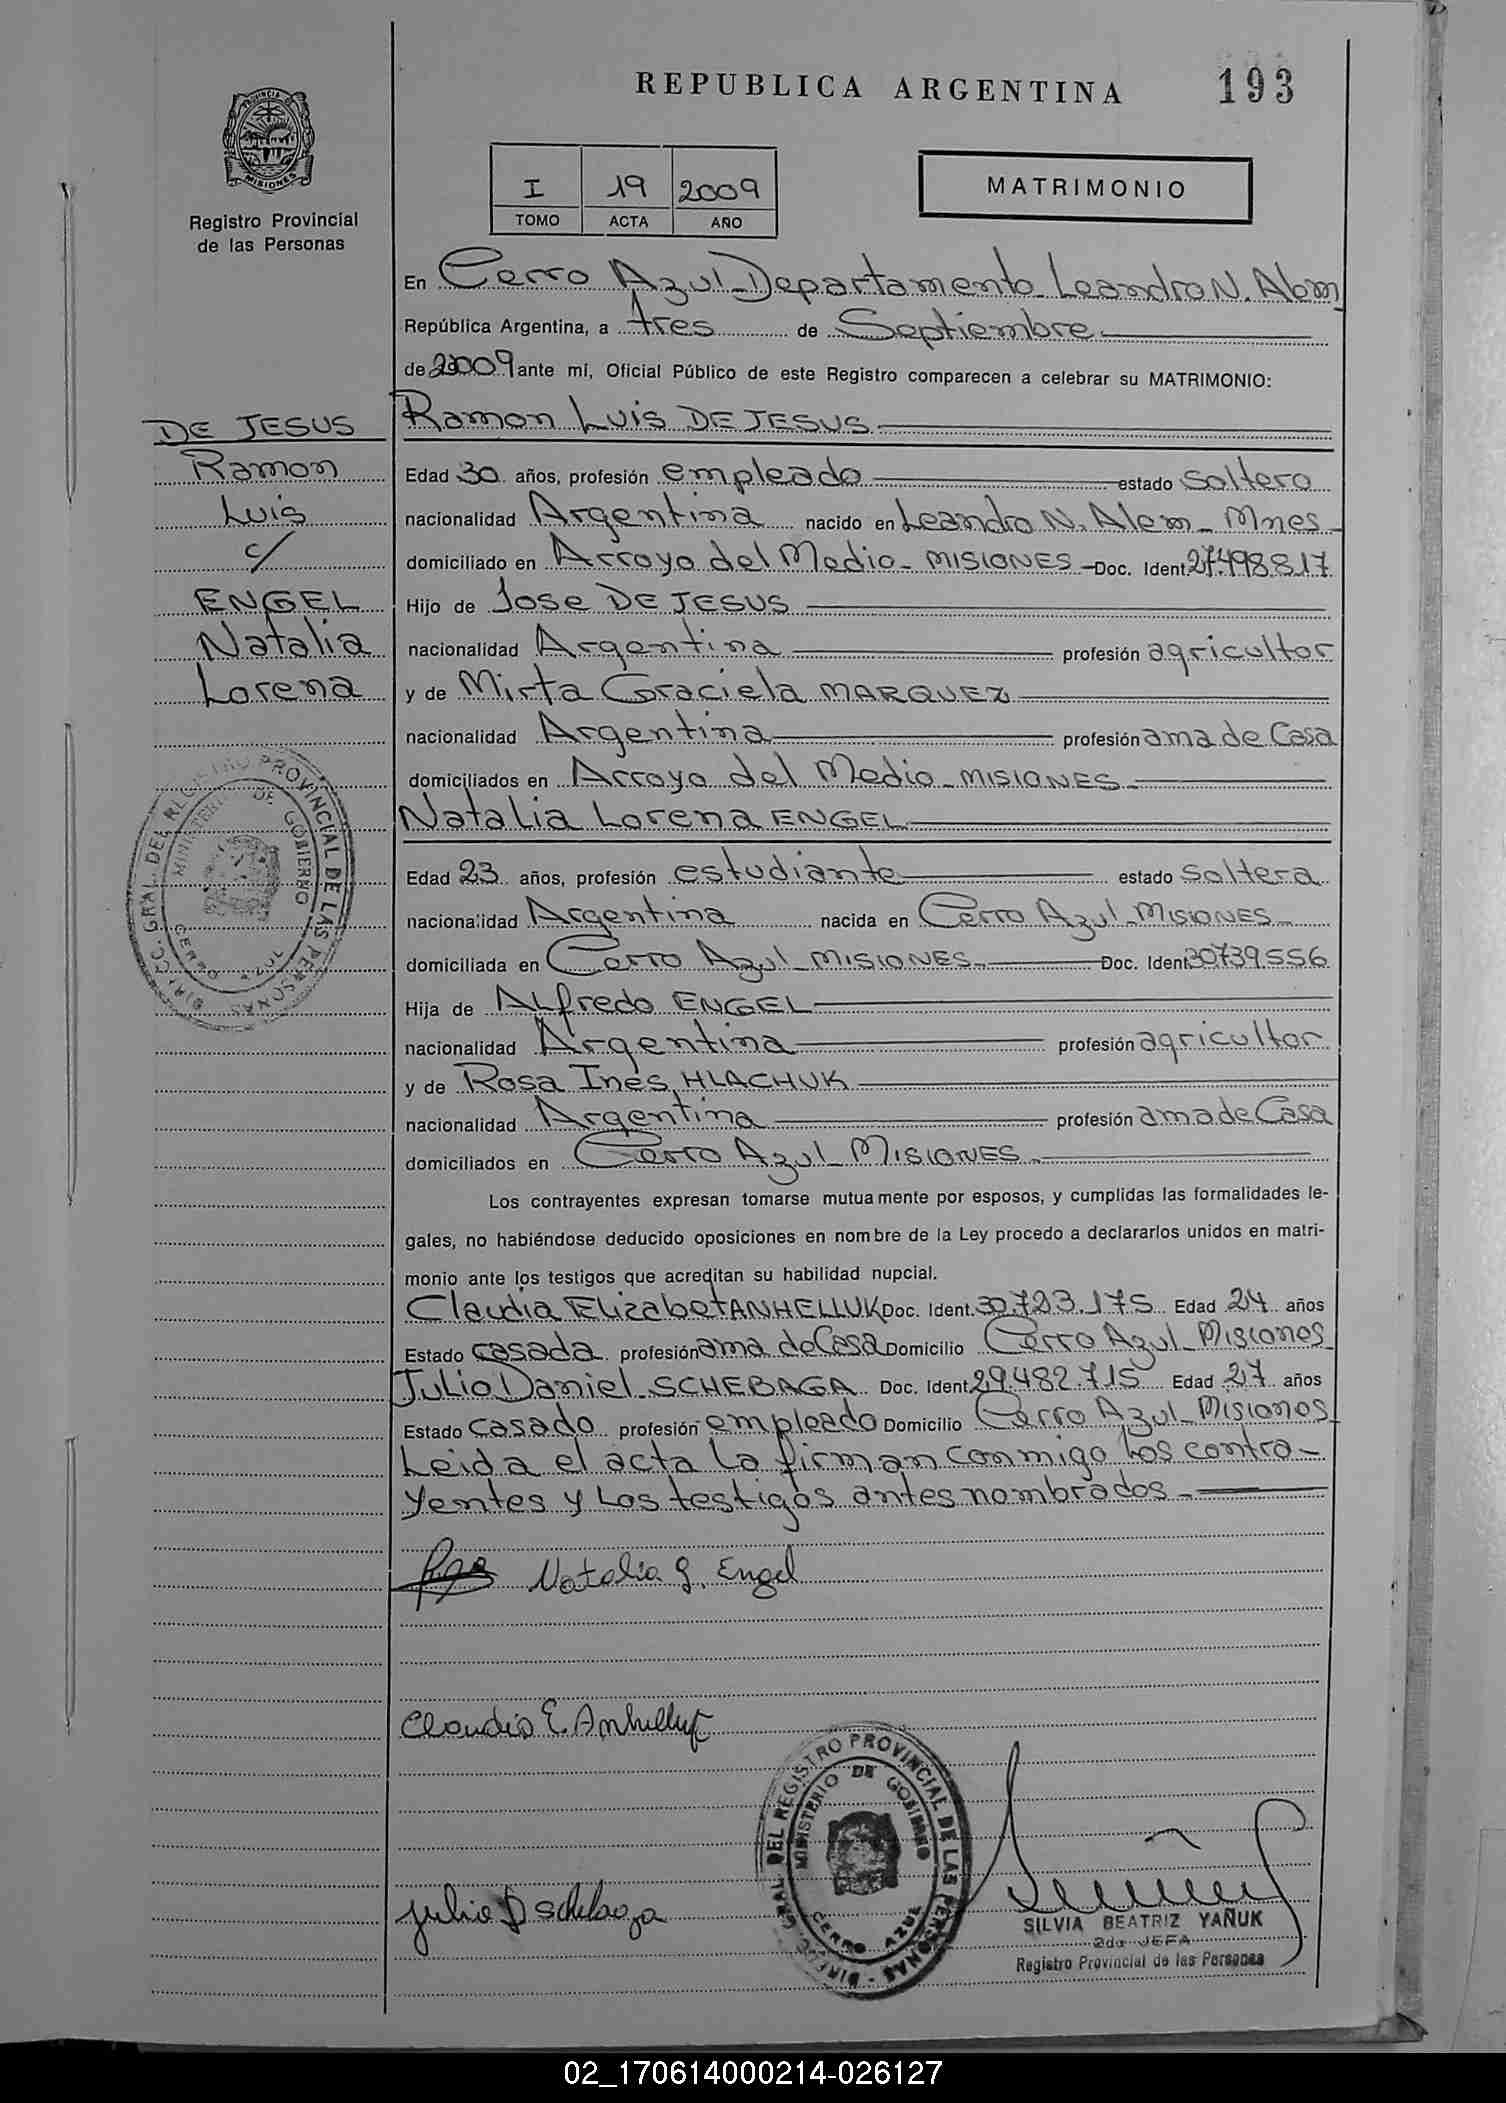 REPUBLICA ARGENTINA 193
PROVINCIA DE
MISIONES
Registro Provincial
de las Personas
I 19 2009
TOMO ACTA AÑO
MATRIMONIO
En Cerro Azul-Departamento Leandro N. Alem
República Argentina, a tres de Septiembre
de 2009 ante mí, Oficial Público de este Registro comparecen a celebrar su MATRIMONIO:
DE JESUS
Ramon
Luis
c/
ENGEL
Natalia
Lorena
Ramon Luis DE JESUS
Edad 30 años, profesión empleado estado soltero
nacionalidad Argentina nacido en Leandro N. Alem - Mnes
domiciliado en Arroyo del Medio - MISIONES - Doc. Ident. 27.498.817
Hijo de Jose DE JESUS
nacionalidad Argentina profesión agricultor
y de Mirta Graciela MARQUEZ
nacionalidad Argentina profesión ama de Casa
domiciliados en Arroyo del Medio - MISIONES
Natalia Lorena ENGEL
Edad 23 años, profesión estudiante estado soltera
nacionalidad Argentina nacida en Cerro Azul - MISIONES
domiciliada en Cerro Azul - MISIONES Doc. Ident. 30739556
Hija de ALfredo ENGEL
nacionalidad Argentina profesión agricultor
y de Rosa Ines HLACHUK
nacionalidad Argentina profesión ama de Casa
domiciliados en Cerro Azul - MISIONES
Los contrayentes expresan tomarse mutuamente por esposos, y cumplidas las formalidades le-
gales, no habiéndose deducido oposiciones en nombre de la Ley procedo a declararlos unidos en matri-
monio ante los testigos que acreditan su habilidad nupcial.
Claudia Elizabet ANHELLUK Doc. Ident. 30.723.175 Edad 24 años
Estado casada profesión ama de Casa Domicilio Cerro Azul - Misiones
Julio Daniel SCHEBAGA Doc. Ident. 29.482.715 Edad 27 años
Estado casado profesión empleado Domicilio Cerro Azul - Misiones
Leida el acta la firman conmigo Los contra-
yentes y Los testigos antes nombrados
Natalia L. Engel
Claudia E. Anhelluk
Julio D Schebaga
DIRECC. GRAL. DEL REGISTRO PROVINCIAL DE LAS PERSONAS
MINISTERIO DE GOBIERNO
CERRO AZUL
DIRECC. GRAL. DEL REGISTRO PROVINCIAL DE LAS PERSONAS
MINISTERIO DE GOBIERNO
CERRO AZUL
SILVIA BEATRIZ YAÑUK
2da JEFA
Registro Provincial de las Personas
02_170614000214-026127